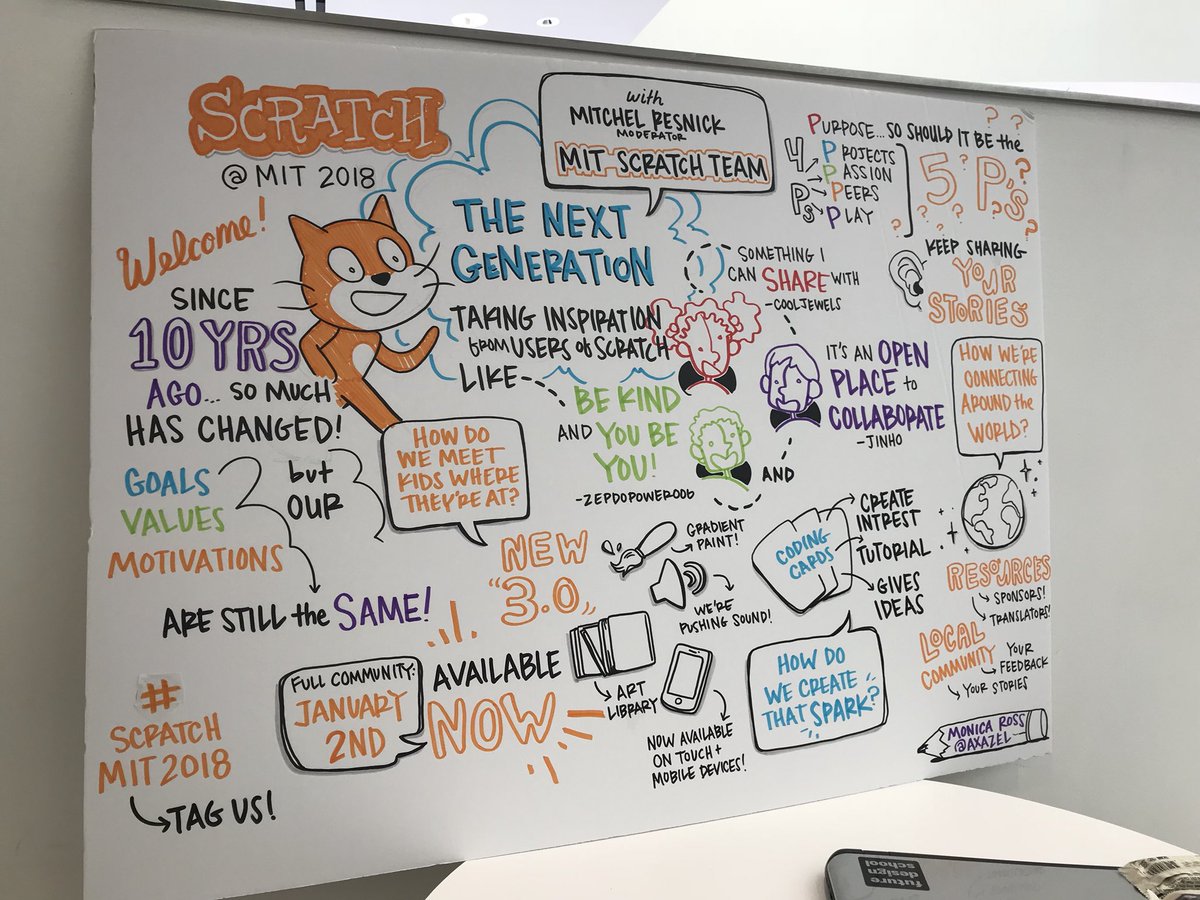 SCRATCH
@ MIT 2018
Welcome!
SINCE
10 YRS
AGO... SO MUCH
HAS CHANGED!
but
OUR
GOALS
VALUES
MOTIVATIONS
ARE STILL the SAME!
#
SCRATCH
MIT2018
TAG US!
with
MITCHEL RESNICK
MODERATOR
MIT SCRATCH TEAM
THE NEXT
GENERATION
TAKING INSPIRATION
from USERS of SCRATCH
LIKE
BE KIND
AND YOU BE
YOU!
-ZEPDOPOWER006
SOMETHING I
CAN SHARE WITH
-COOLJEWELS
IT'S AN OPEN
PLACE to
COLLABORATE
-JINHO
AND
HOW DO
WE MEET
KIDS WHERE
THEY'RE AT?
NEW
"3.0"
AVAILABLE
NOW
FULL COMMUNITY:
JANUARY
2ND
GRADIENT
PAINT!
WE'RE
PUSHING SOUND!
ART
LIBRARY
NOW AVAILABLE
ON TOUCH +
MOBILE DEVICES!
CODING
CARDS
CREATE
INTREST
TUTORIAL
GIVES
IDEAS
HOW DO
WE CREATE
THAT SPARK?
PURPOSE... SO SHOULD IT BE the
4
P's
PROJECTS
PASSION
PEERS
PLAY
5 P's
? ? ? ? ? ? ? ? ?
KEEP SHARING
YOUR
STORIES
HOW WE'RE
CONNECTING
AROUND the
WORLD?
RESOURCES
SPONSORS!
TRANSLATORS!
LOCAL
COMMUNITY
YOUR
FEEDBACK
YOUR STORIES
MONICA ROSS
@AXAZEL
future
design
school